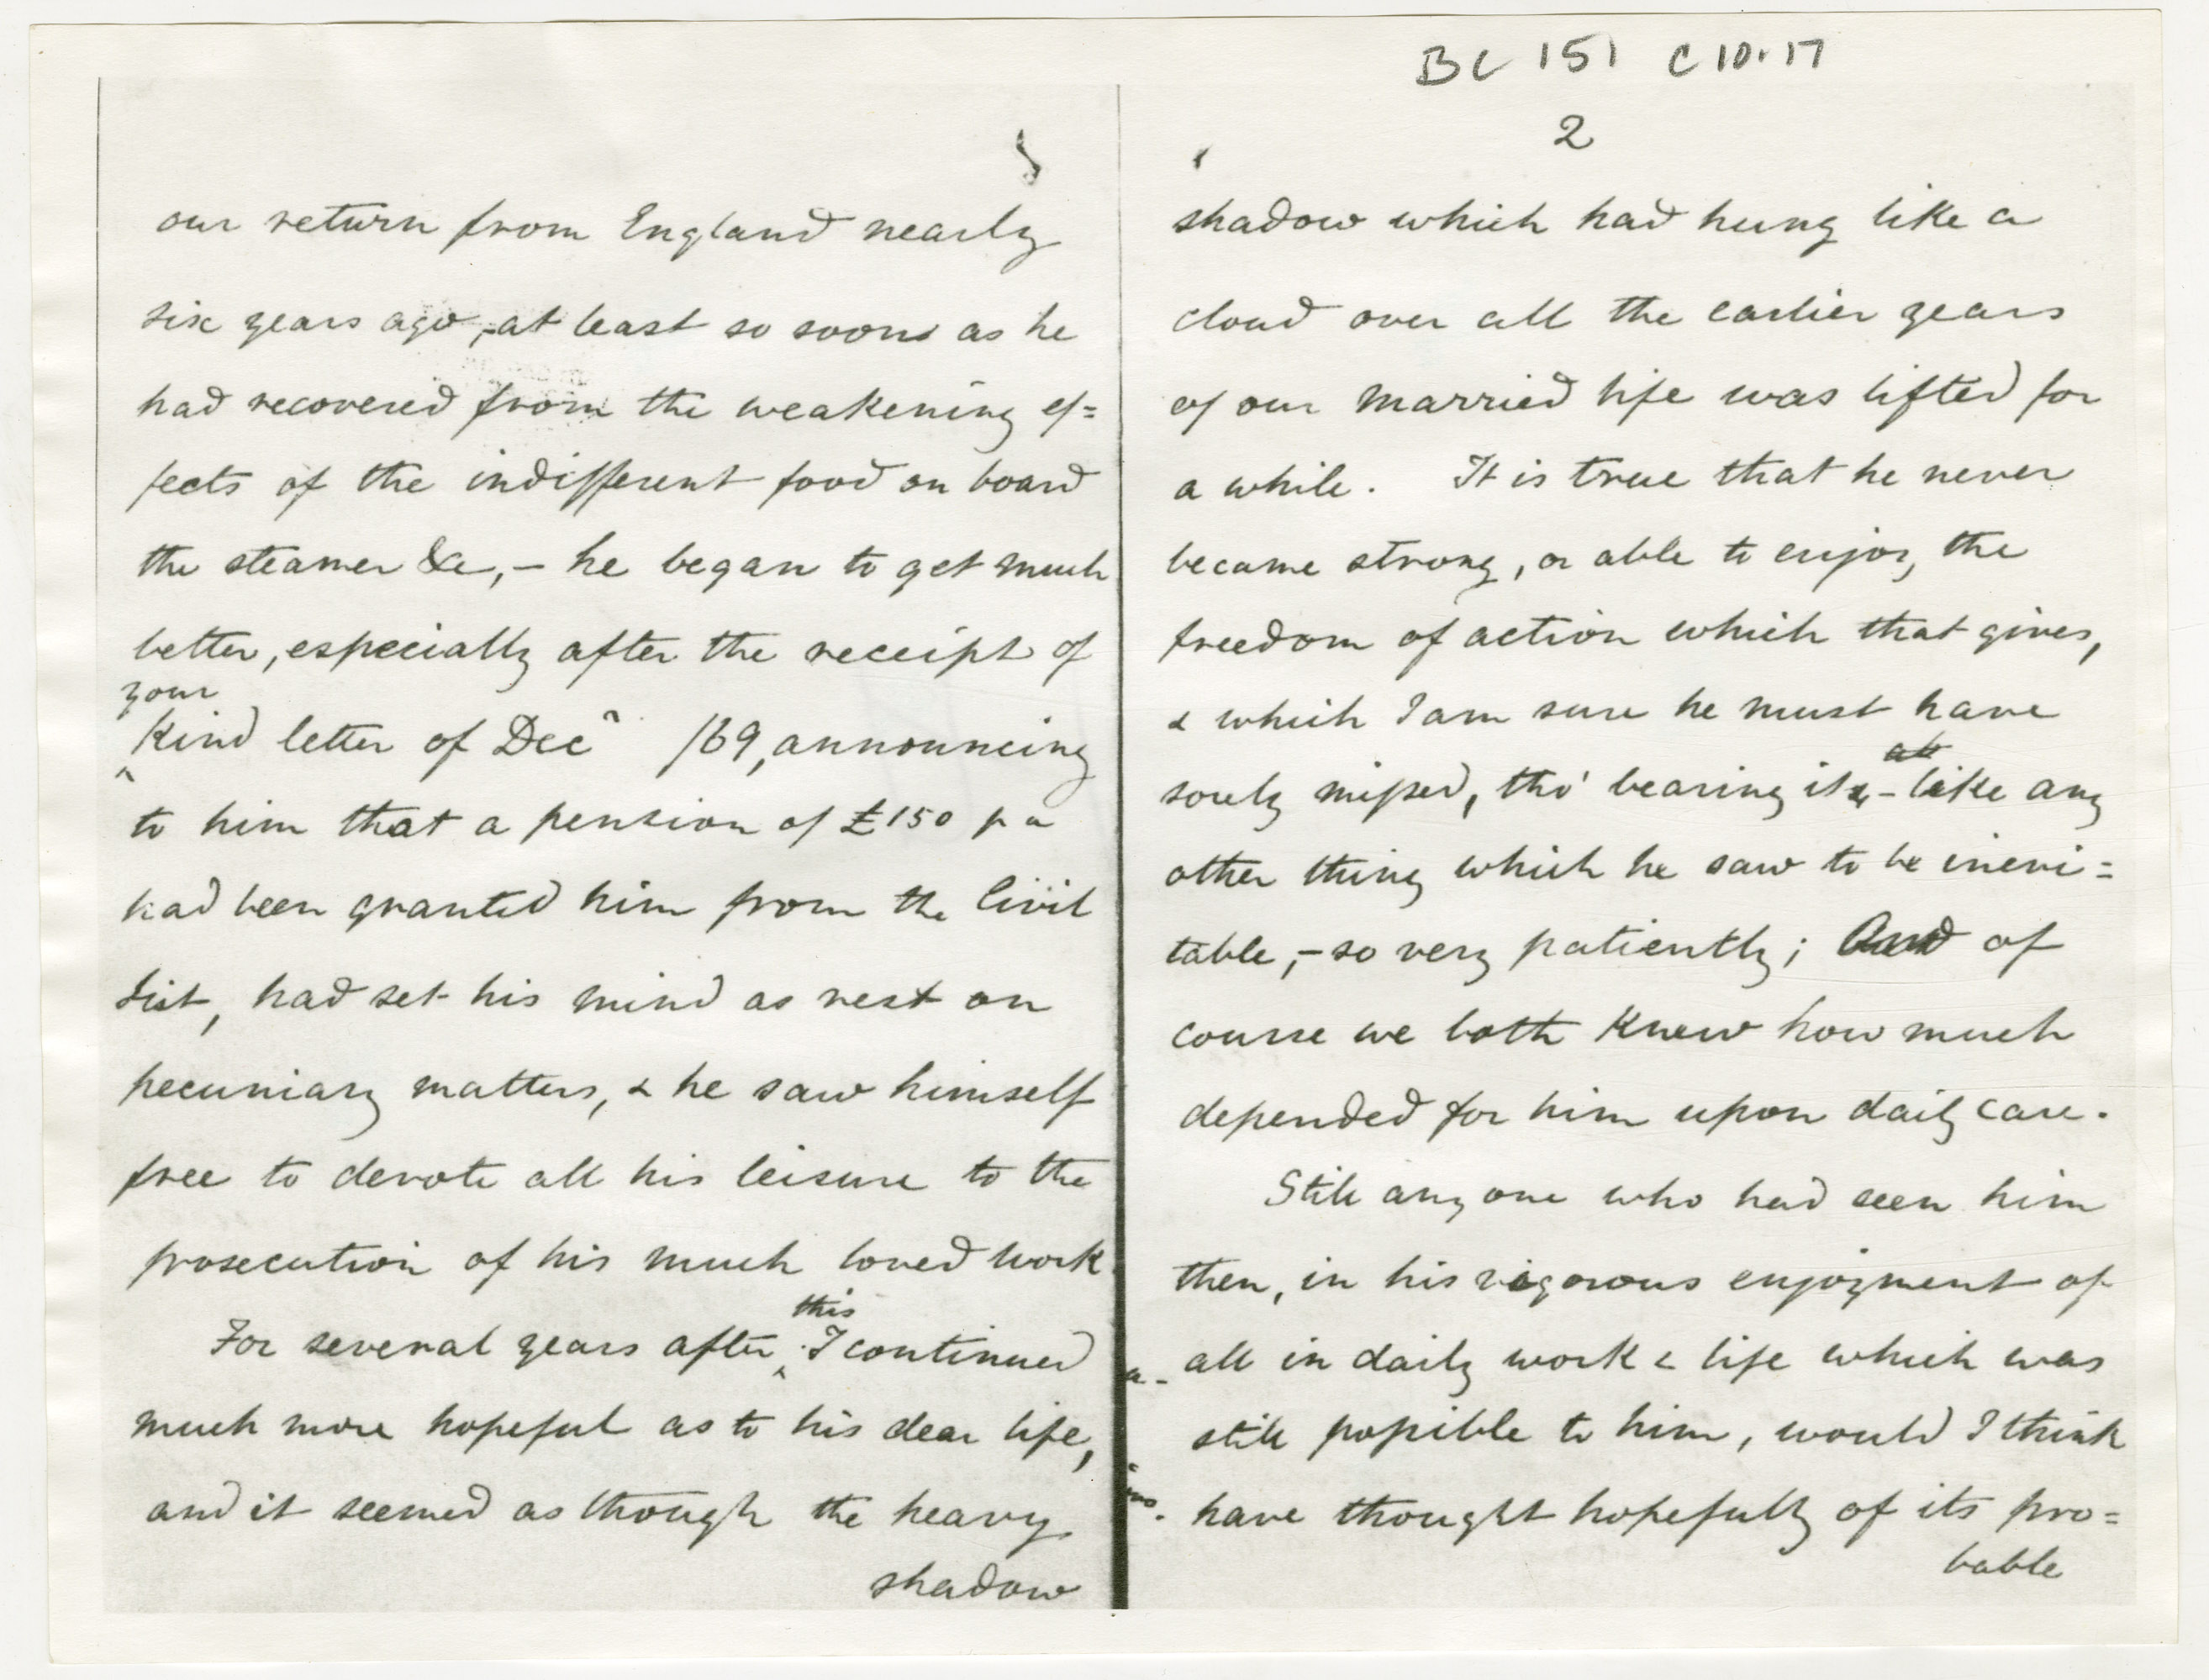 BC 151 C10.17
our return from England nearly
six years ago, – at least so soon as he
had recovered from the weakening ef=
fects of the indifferent food on board
the steamer &c, – he began to get much
better, especially after the receipt of
your
kind letter of Decr /69, announcing
to him that a pension of £150 p a
had been granted him from the Civil
List, had set his mind as rest on
pecuniary matters, & he saw himself
free to devote all his leisure to the
prosecution of his much loved work
this
For several years after I continued
much more hopeful as to his dear life,
and it seemed as though the heavy
shadow
2
shadow which had hung like a
cloud over all the earlier years
of our married life was lifted for
a while. It is true that he never
became strong, or able to enjoy the
freedom of action which that gives,
& which I am sure he must have
sorely missed, tho' bearing it, – like any
other thing which he saw to be inevi=
table, – so very patiently; And of
course we both knew how much
depended for him upon daily care.
Still any one who had seen him
then, in his vigorous enjoyment of
all in daily work & life which was
still possible to him, would I think
have thought hopefully of its pro=
bable